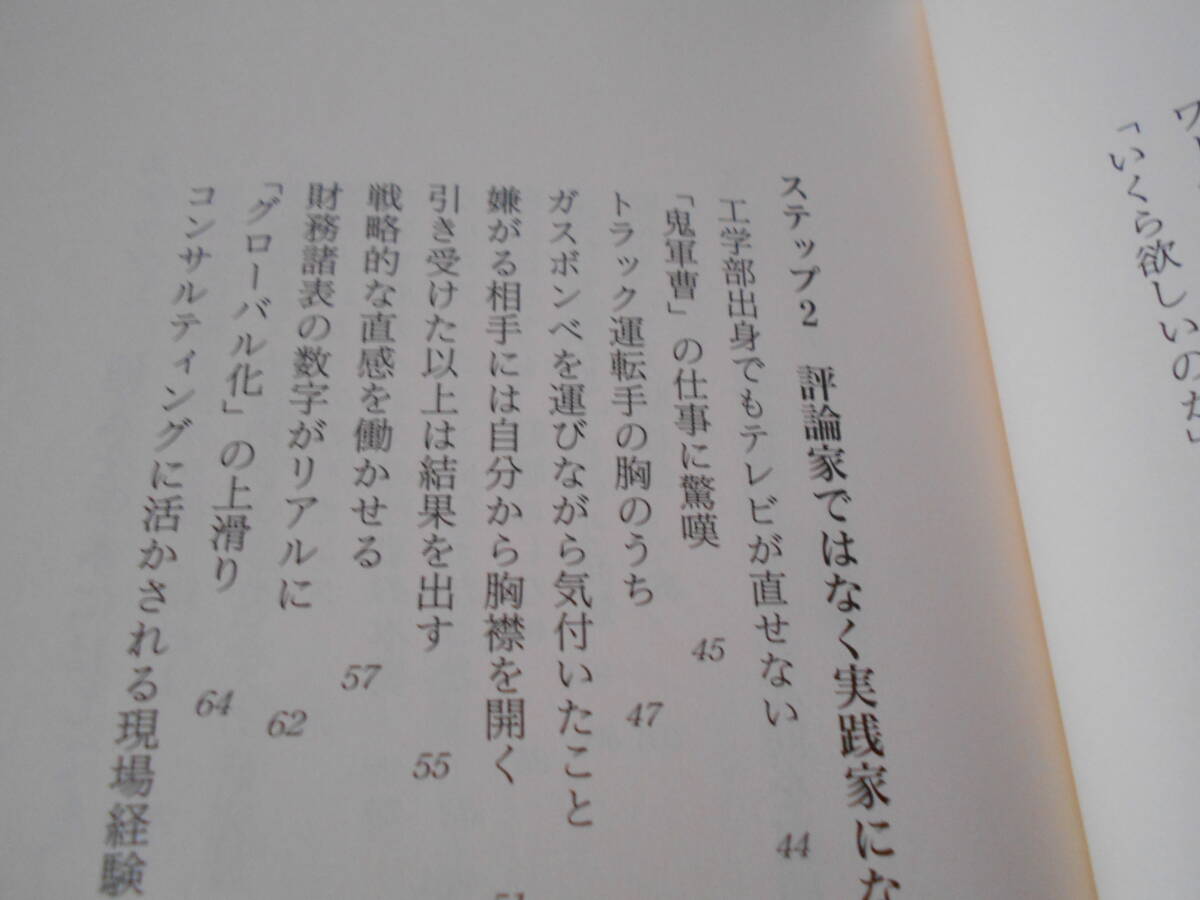 「いくら欲しいのだ」
ステップ2 評論家ではなく実践家にな
工学部出身でもテレビが直せない 44
「鬼軍曹」の仕事に驚嘆 45
トラック運転手の胸のうち 47
ガスボンベを運びながら気付いたこと
嫌がる相手には自分から胸襟を開く
引き受けた以上は結果を出す 55
戦略的な直感を働かせる 57
財務諸表の数字がリアルに 62
「グローバル化」の上滑り 64
コンサルティングに活かされる現場経験